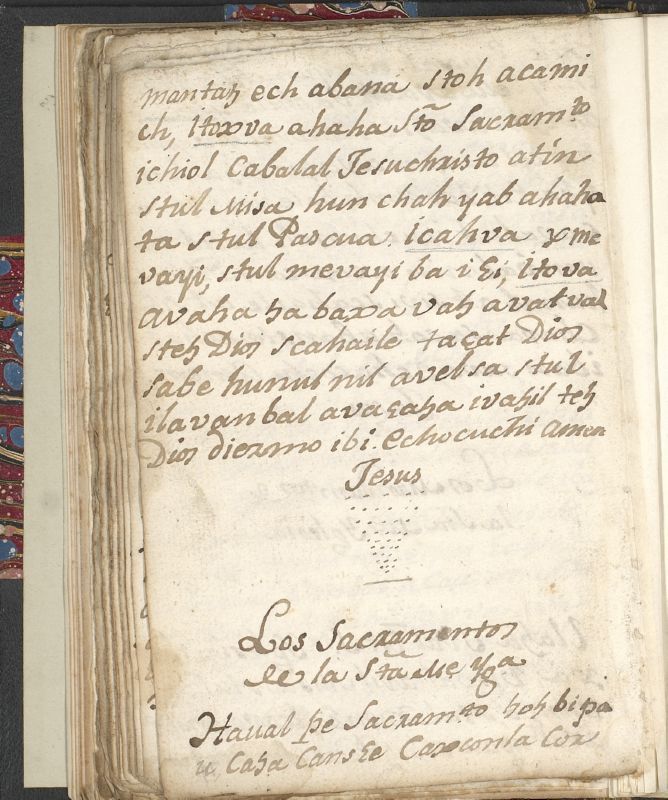 mantaꜧ ech abana stoh acami
ch, Itoxva ahaha Sto᷃ Sacram.to
ichiol Cabalal Jesuchristo atin
stul Misa hun chah yab ahaha
ta stul Pascua. Icahva xme
vayi, stul mevayi ba i ꜫi, Itova
avaha ꜧa baxa vaꜧ avatval
steꜧ Dios scahaile taçat Dios
sabe hunul nil avelsa stul
ilavanbal avaꜫaꜧa ivaꜧil teꜧ
Dios diezmo ibi. echocuchi amen
Jesus
Los Sacramentos
de la Sta᷃ Me Yga
Haval þe Sacram.to ꜧoꜧ bi pa
u Caꜧa Cansꜫe Caxconla Cox